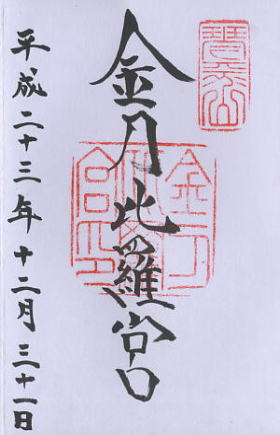 琴平山
金刀比羅宮
金刀比羅宮印
平成二十三年十二月三十一日